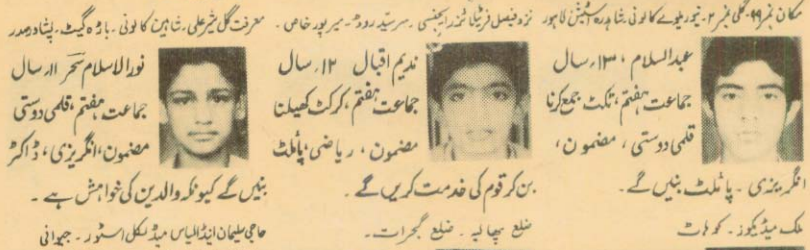 مکان نمبر ۹۹۔ گلی نمبر ۲۔ نیو ریلوے کالونی۔ شاہدرہ اسٹیشن لاہور
عبدالسلام ، ۱۳ سال
جماعت ہفتم، ٹکٹ جمع کرنا
قلمی دوستی ، مضمون ،
انگریزی ۔ پائلٹ بنیں گے ۔
ملک میڈیکوز ۔ کوہاٹ
نزد فیصل فرٹیلائزر ایجنسی ۔ سرسید روڈ ۔ میرپور خاص ۔
ندیم اقبال ۱۲ سال
جماعت ہفتم، کرکٹ کھیلنا
مضمون ، ریاضی، پائلٹ
بن کر قوم کی خدمت کریں گے ۔
ضلع پھالیہ ۔ ضلع گجرات ۔
معرفت گل شیر علی ۔ شاہین کالونی ۔ باڑہ گیٹ ۔ پشاور صدر
نورالاسلام سحر ۱۱ سال
جماعت ہفتم، قلمی دوستی
مضمون، انگریزی، ڈاکٹر
بنیں گے کیونکہ والدین کی خواہش ہے ۔
حاجی سلیمان اینڈ الیاس میڈیکل اسٹور ۔ جیوانی